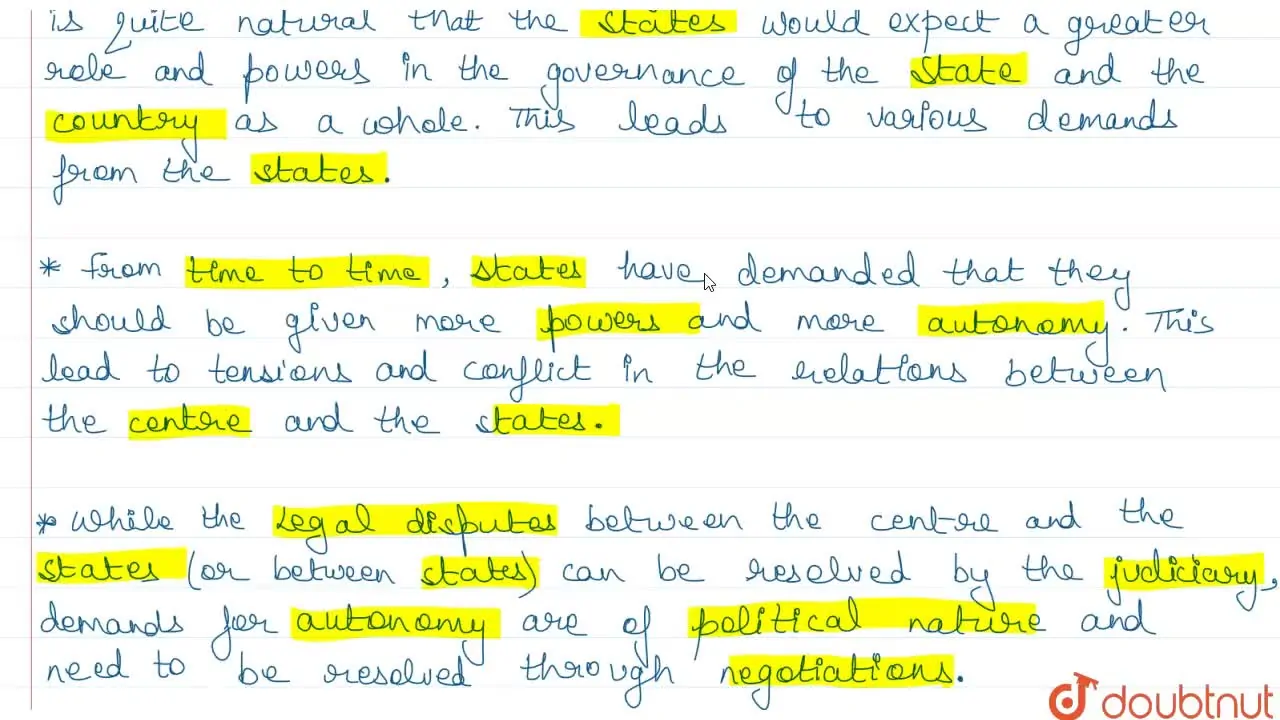 is quite natural that the states would expect a greater
role and powers in the governance of the state and the
country as a whole. This leads to various demands
from the states.
* From time to time, states have demanded that they
should be given more powers and more autonomy. This
lead to tensions and conflict in the relations between
the centre and the states.
* While the Legal disputes between the centre and the
states (or between states) can be resolved by the judiciary,
demands for autonomy are of political nature and
need to be resolved through negotiations.
doubtnut